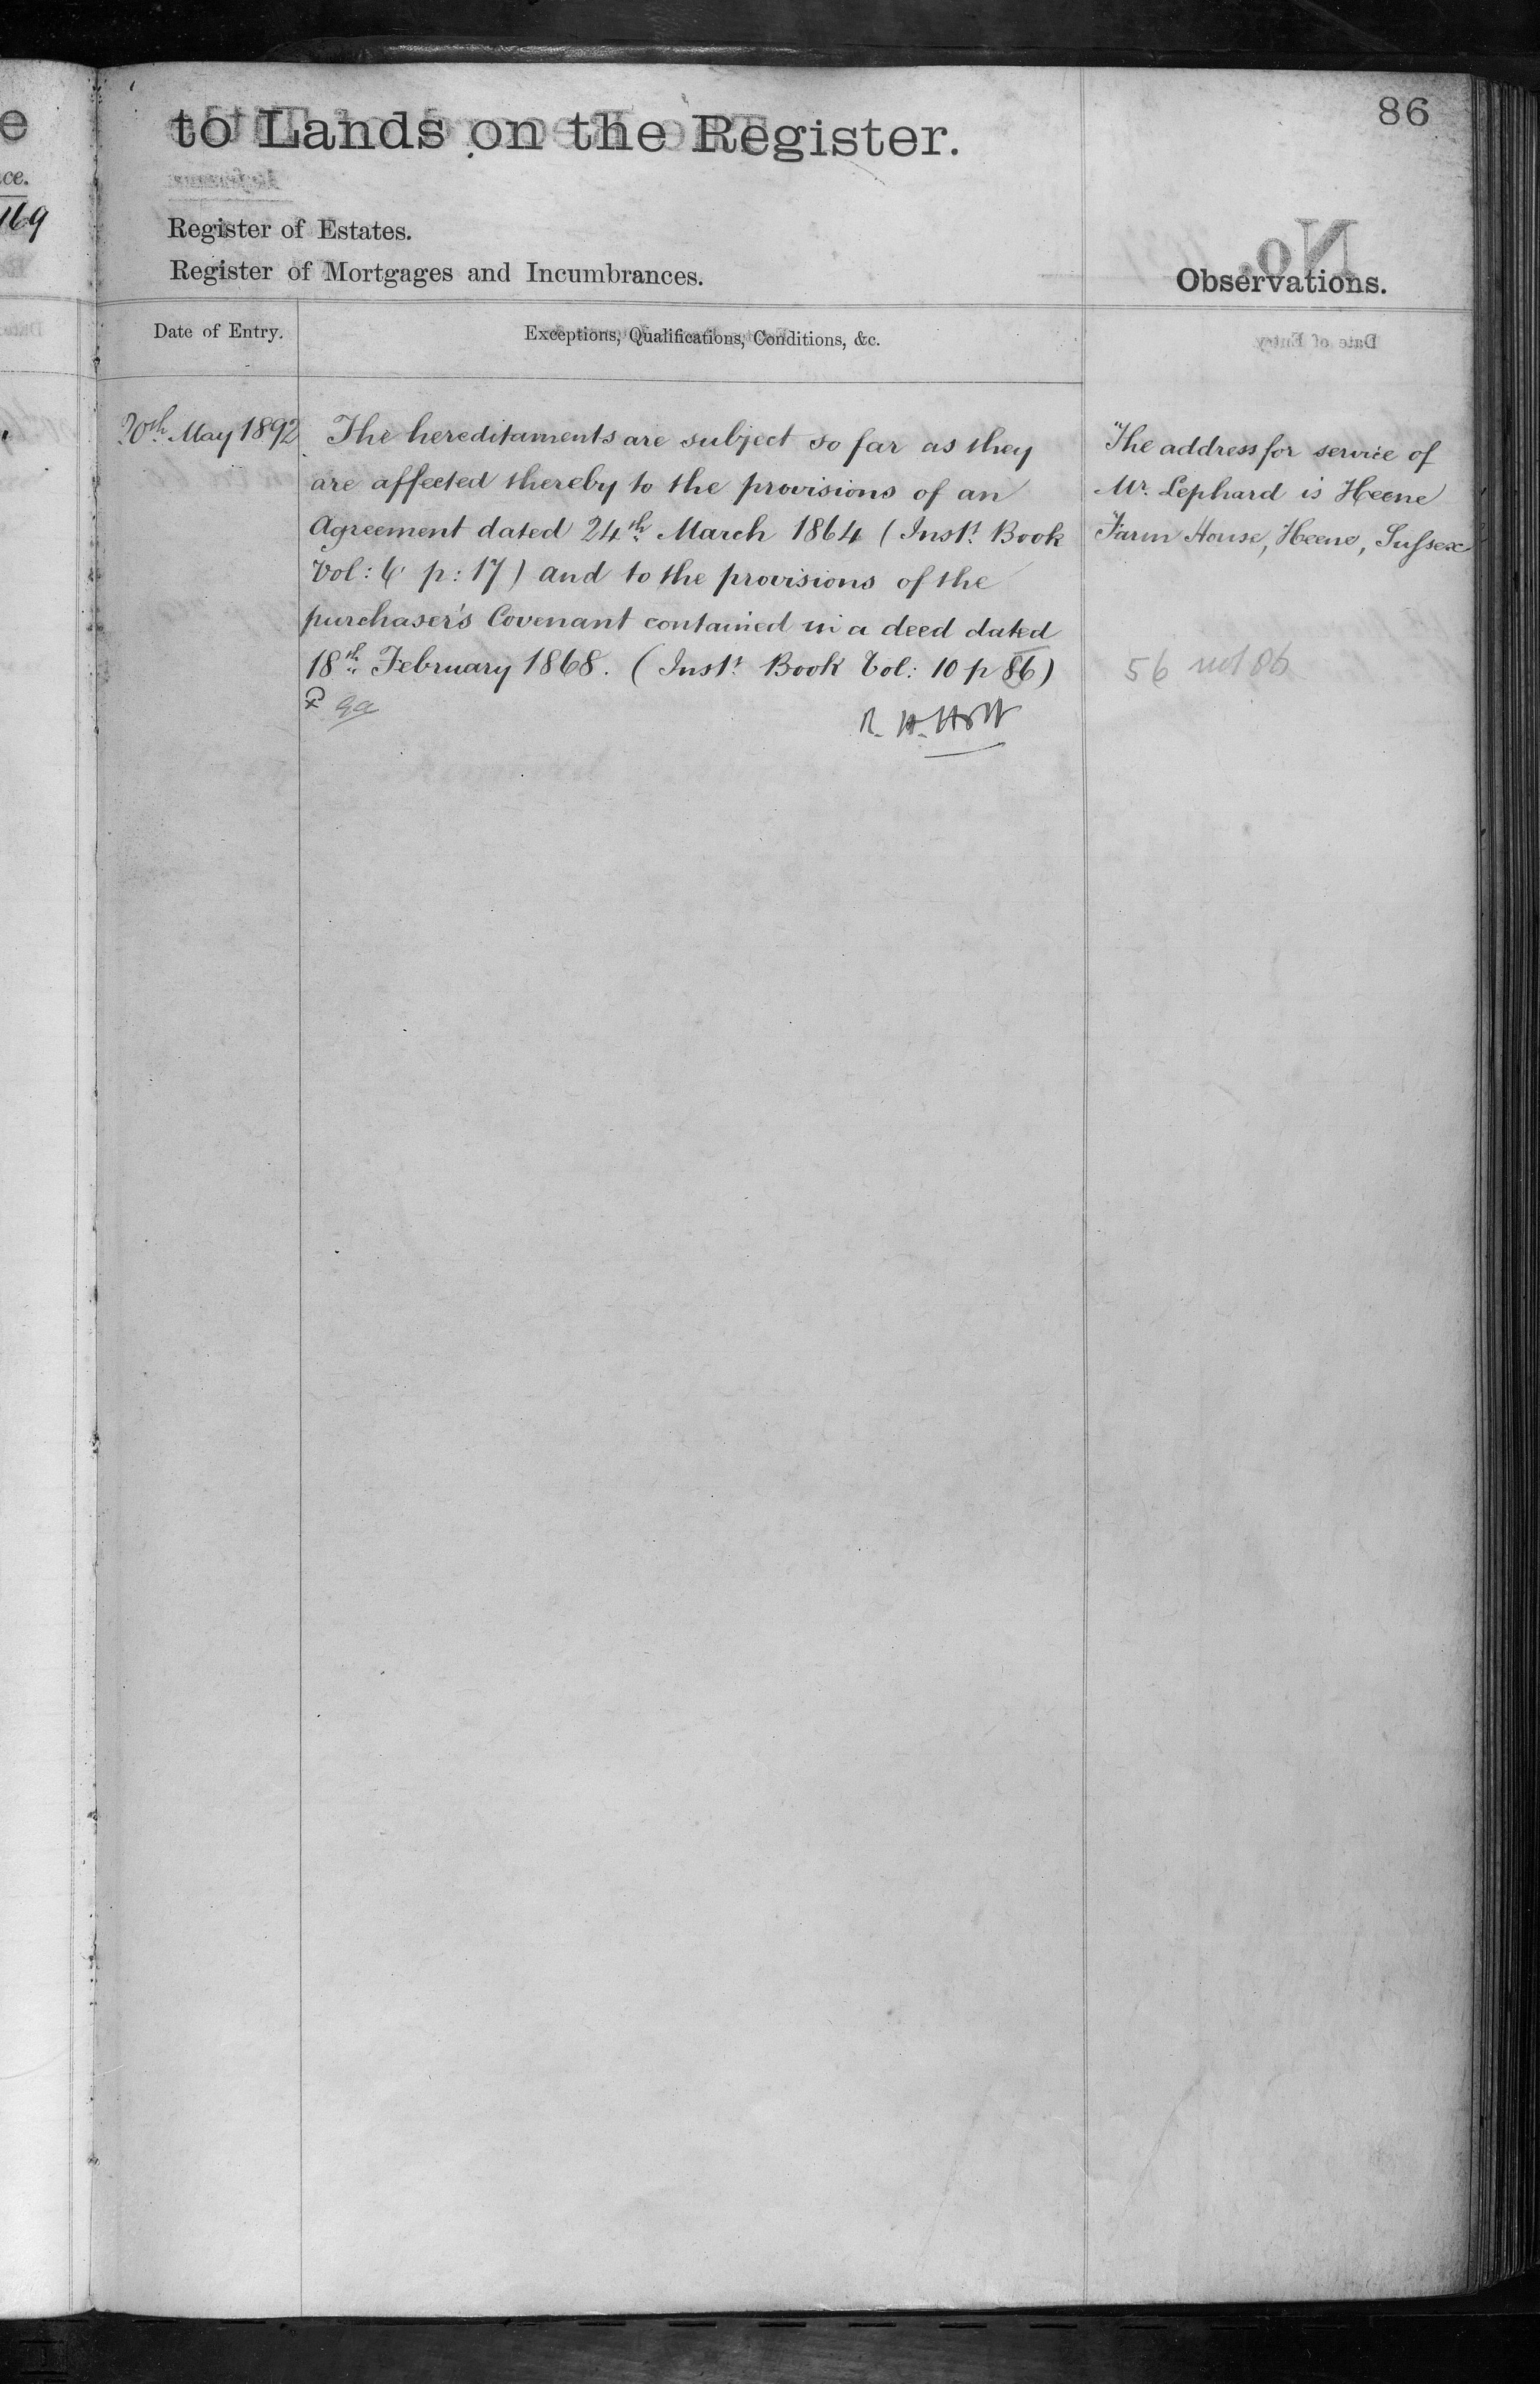 86
to Lands on the Register.
Register of Estates.
Register of Mortgages and Incumbrances.
Observations.
Date of Entry.
Exceptions, Qualifications, Conditions, &c.
20th May 1892
The hereditaments are subject so far as they
are affected thereby to the provisions of an
Agreement dated 24th March 1864 (Inst. Book
Vol: 6 p: 17) and to the provisions of the
purchaser's Covenant contained in a deed dated
18th February 1868. (Inst. Book Vol: 10 p 86)
R. H. Holt
The address for service of
Mr. Lephard is Heene
Farm House, Heene, Sussex
56 not 86
e
ce.
169